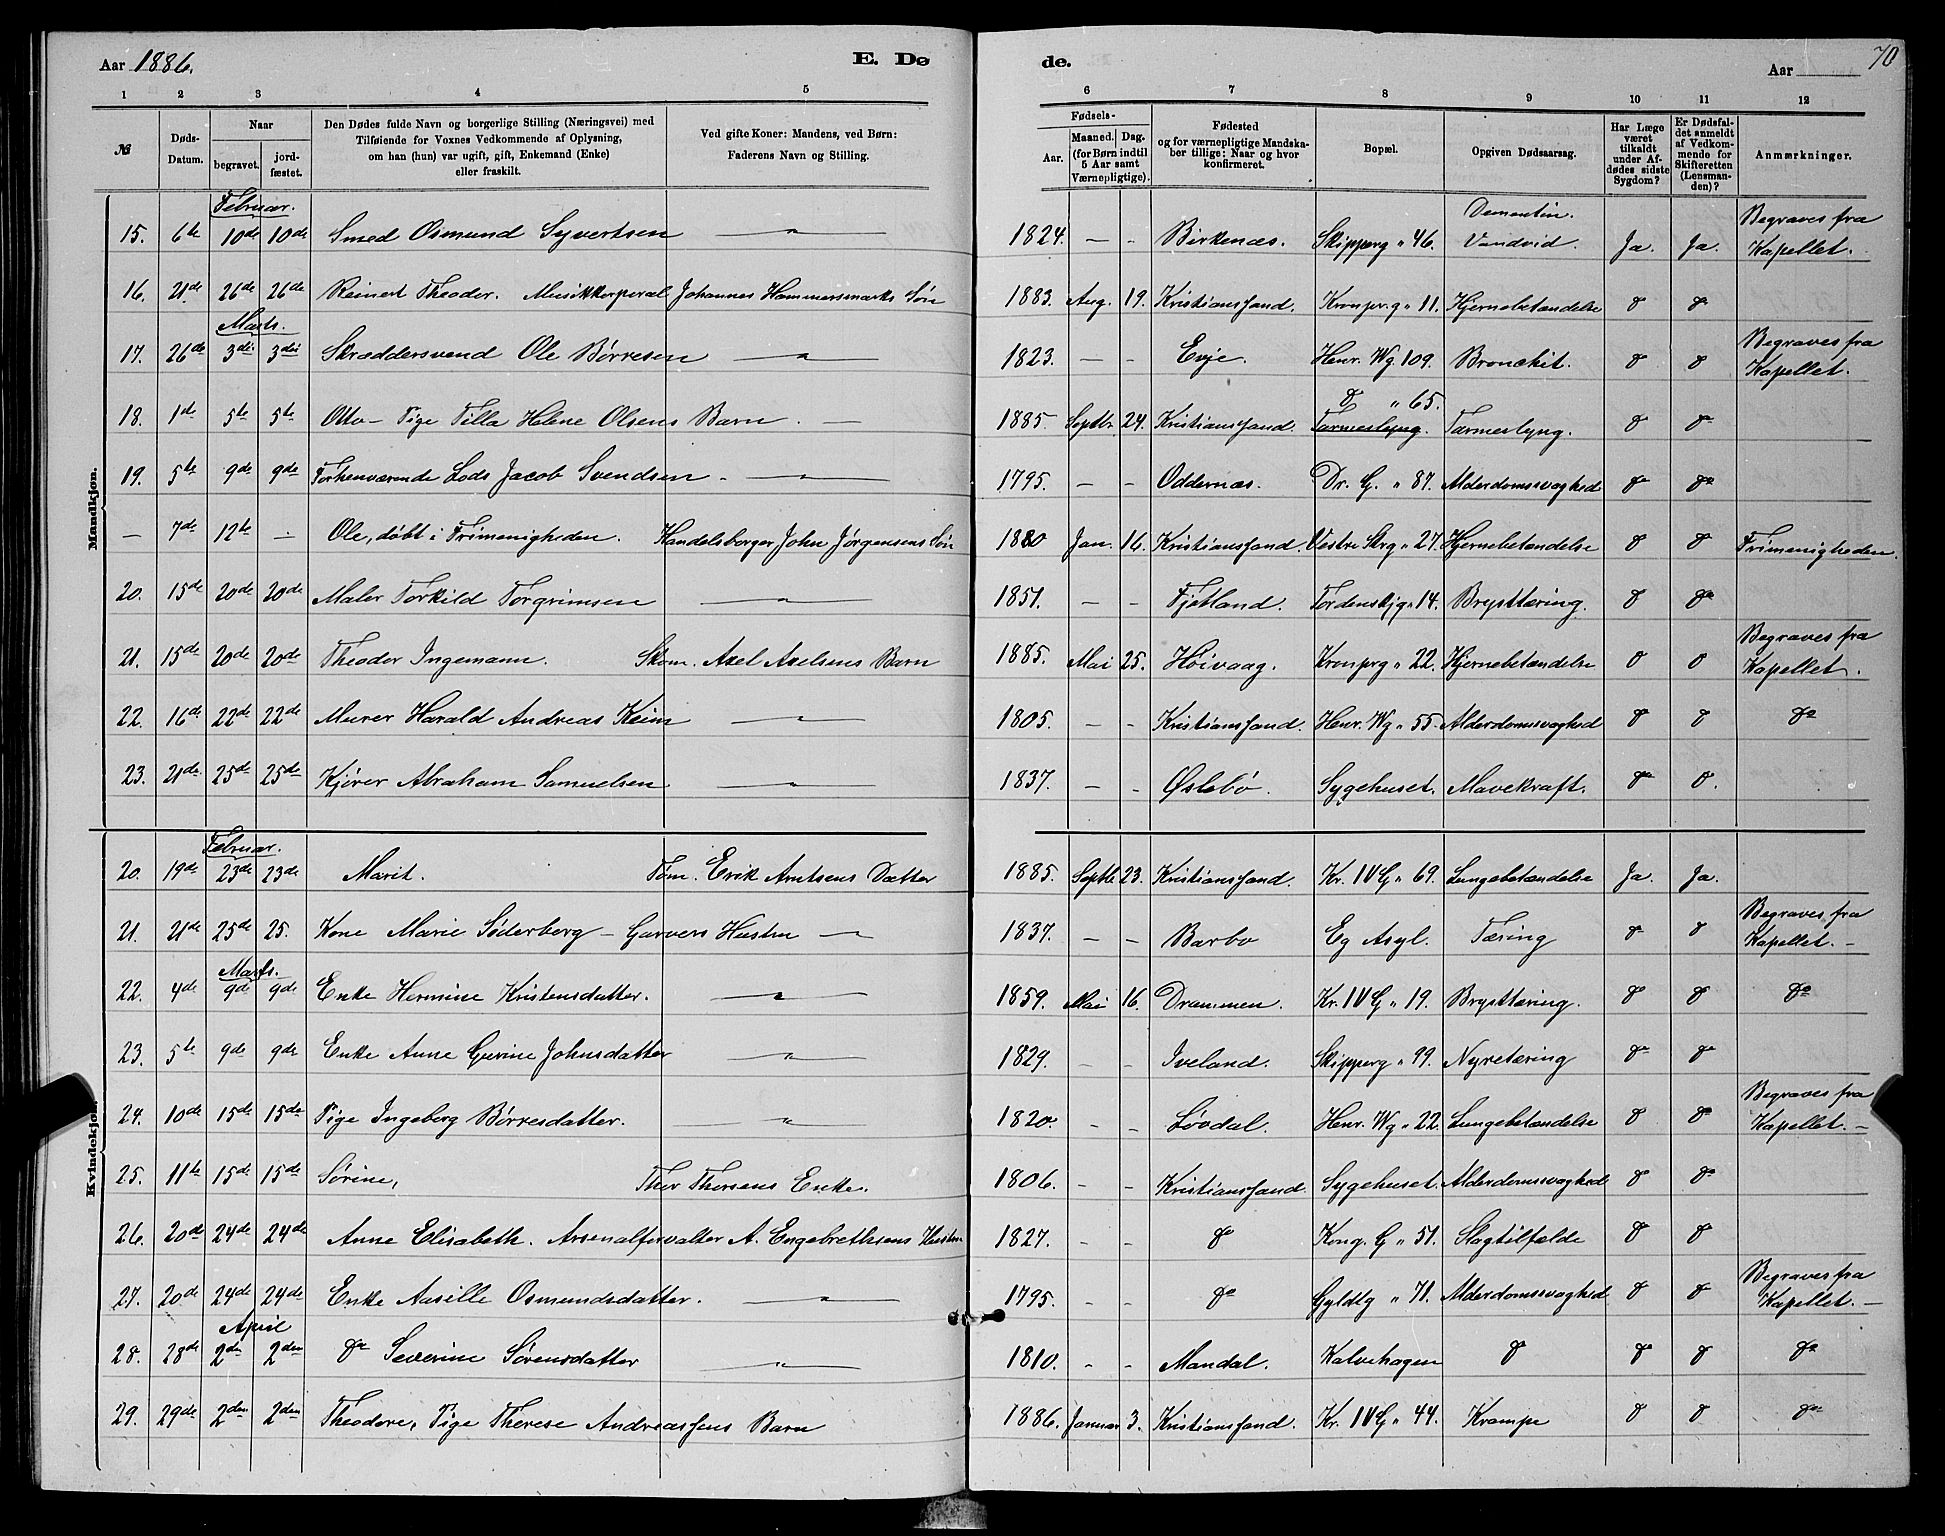 Aar 1886.
E. Dø
de.
Aar
70
1 2 3 4 5 6 7 8 9 10 11 12
№
Døds-Datum.
Naar
begravet.
jord-fæstet.
Den Dødes fulde Navn og borgerlige Stilling (Næringsvei) med
Tilføiende for Voxnes Vedkommende af Oplysning,
om han (hun) var ugift, gift, Enkemand (Enke)
eller fraskilt.
Ved gifte Koner: Mandens, ved Børn:
Faderens Navn og Stilling.
Fødsels-
Aar.
Maaned. Dag.
(for Børn indtil
5 Aar samt
Værnepligtige).
Fødested
og for værnepligtige Mandska-
ber tillige: Naar og hvor
konfirmeret.
Bopæl.
Opgiven Dødsaarsag.
Har Læge
været
tilkaldt
under Af-
dødes sidste
Sygdom?
Er Dødsfal-
det anmeldt
af Vedkom-
mende for
Skifteretten
(Lensman-
den)?
Anmærkninger.
Mandkjøn.
Februar.
15. 6te 10de 10de Smed Osmund Syvertsen — " — 1824. - - Birkenæs. Skipperg " 46. Dementin. Vandvid. Ja. Ja. Begraves fra Kapellet.
16. 21de 26de 26de Reinert Theodor. Musikkorporal Johannes Hammersmarks Søn 1883. Aug. 19. Kristianssand. Kronpr.g " 11. Hjernebetændelse do do
Marts.
17. 26de 3die 3die Skræddersvend Ole Børresen — " — 1823. - - Evje. Henr. Wg. 109. Bronchit. do do Begraves fra Kapellet.
18. 1de 5te 5te Otto - Pige Tilla Helene Olsens Barn. — 1885. Septbr. 24. Kristianssand. do " 65. Tarmeslyng. Tarmeslyng. do do
19. 5te 9de 9de Forhenværende Lods Jacob Svendsen - — " — 1795. - - Oddernæs. Dr. G. " 87. Alderdomssvaghed do do
— 7de 12te - Ole, døbt i Frimenigheden. Handelsborger John Jørgensens Søn 1880 Jan. 16. Kristianssand. Vestre Strg " 27. Hjernebetændelse do do Frimenigheden.
20. 15de 20de 20de Maler Torkild Torgrimsen — " — 1851. - - Fjotland. Tordenskjg " 14. Brysttæring. do do
21. 15de 20de 20de Theodor Ingemann. Skom. Axel Axelsens Barn 1885. Mai 25. Høivaag. Kronprg " 22. Hjernebetændelse do do Begraves fra Kapellet.
22. 16de 22de 22de Murer Harald Andreas Keim — " — 1805. - - Kristianssand. Henr. Wg " 55. Alderdomssvaghed do do do
23. 21de 25de 25de Kjører Abraham Samuelsen — " — 1837. - - Øslebø. Sygehuset. Mavekræft. do do.
Kvindekjøn.
Februar.
20. 19de 23de 23de Marit. Tøm. Erik Arntsens Datter 1885. Septb. 23. Kristianssand. Kr. IV G " 69. Lungebetændelse Ja. Ja.
21. 21de 25de 25. Kone Marie Søderberg - Garvers Hustru — 1837. - - Barbo Eg Asyl. Tæring do do Begraves fra Kapellet. -
Marts.
22. 4de 9de 9de Enke Hermine Kristensdatter. — " — 1859. Mai 16. Drammen. Kr. IV G " 19. Brysttæring. do do do
23. 5te 9de 9de Enke Anne Gurine Johnsdatter — " — 1829. - - Iveland. Skipperg " 99. Nyretæring do do
24. 10de 15de 15de Pige Ingeborg Børresdatter. — " — 1820. - - Løvdal. Henr. Wg " 22. Lungebetændelse do do Begraves fra Kapellet. -
25. 11te 15de 15de Sørine, Thor Thorsens Enke. 1806. - - Kristianssand. Sygehuset. Alderdomssvaghed do do
26. 20de 24de 24de Anne Elisabeth. Arsenalforvalter A. Engebrethsens Hustru 1827. - - do Kong. G " 51. Slagtilfælde do do
27. 20de 24de 24de Enke Aasille Osmundsdatter. — " — 1795. - - do Gyldlg " 71. Alderdomssvaghed do do Begraves fra Kapellet. -
April
28. 28de 2den 2den do Severine Sørensdatter — " — 1810. - - Mandal. Kalvehagen do do do do
29. 29de 2den 2den Theodore, Pige Therese Andreassens Barn 1886. Januar 3. Kristianssand. Kr. IV G " 44. Krampe do do do